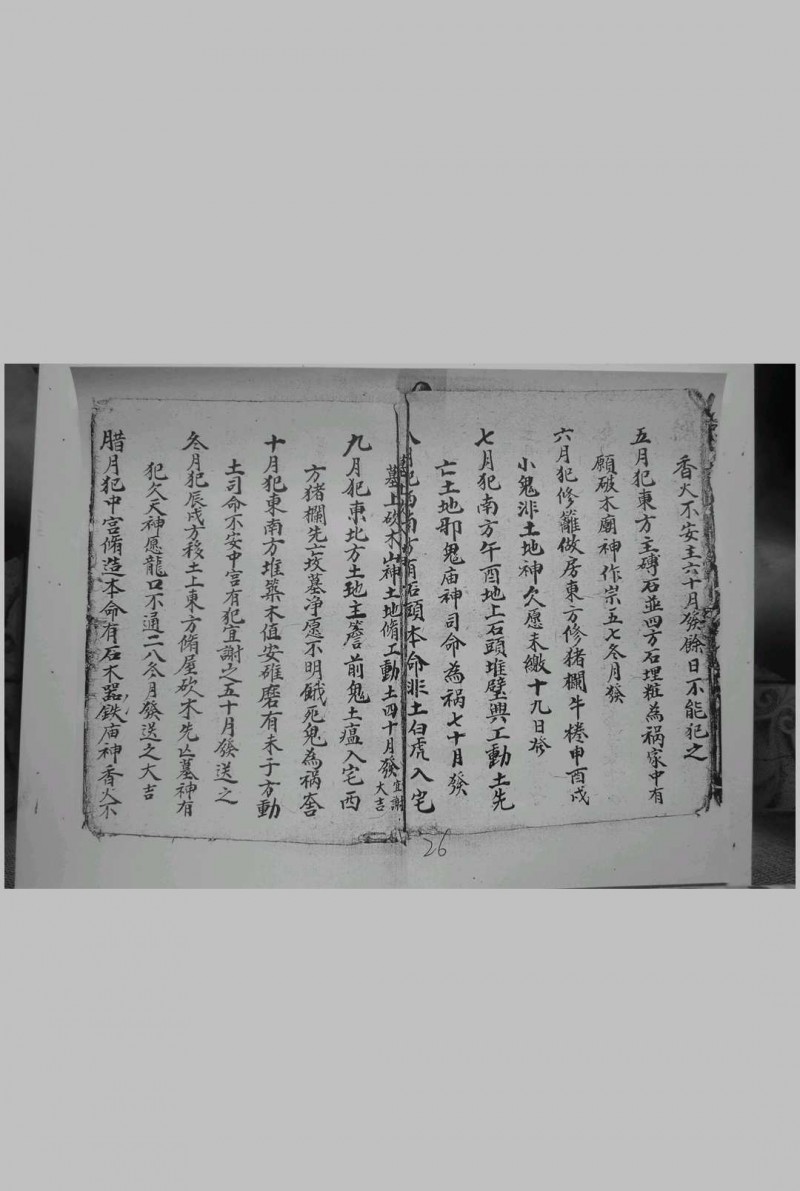 香火不安主六十月發餘日不能犯之
五月犯東方主磚石並四方石埋粧為禍家中有
願破木廟神作宗五七冬月發
六月犯修籬做房東方修猪欄牛棬申酉戌
小鬼非土地神欠愿未繳十九日發
七月犯南方午酉地上石頭堆壁興工動土先
亡土地邪鬼庙神司命為祸七十月發
八月犯西南方有石頭本命非土白虎入宅
墓上砍木山神土地脩工動土四十月發宜謝大吉
九月犯東北方土地主簷前鬼土瘟入宅西
方猪欄先亡坟墓净愿不明餓死鬼為祸
十月犯東南方堆築木值安碓磨有未于方動
土司命不安中宮有犯宜謝之五十月發送之
冬月犯辰戌方移土上東方脩屋砍木先亡墓神有
犯欠天神愿龍口不通二八冬月發送之大吉
腊月犯中宮脩造本命有石木器鉄庙神香火不
26